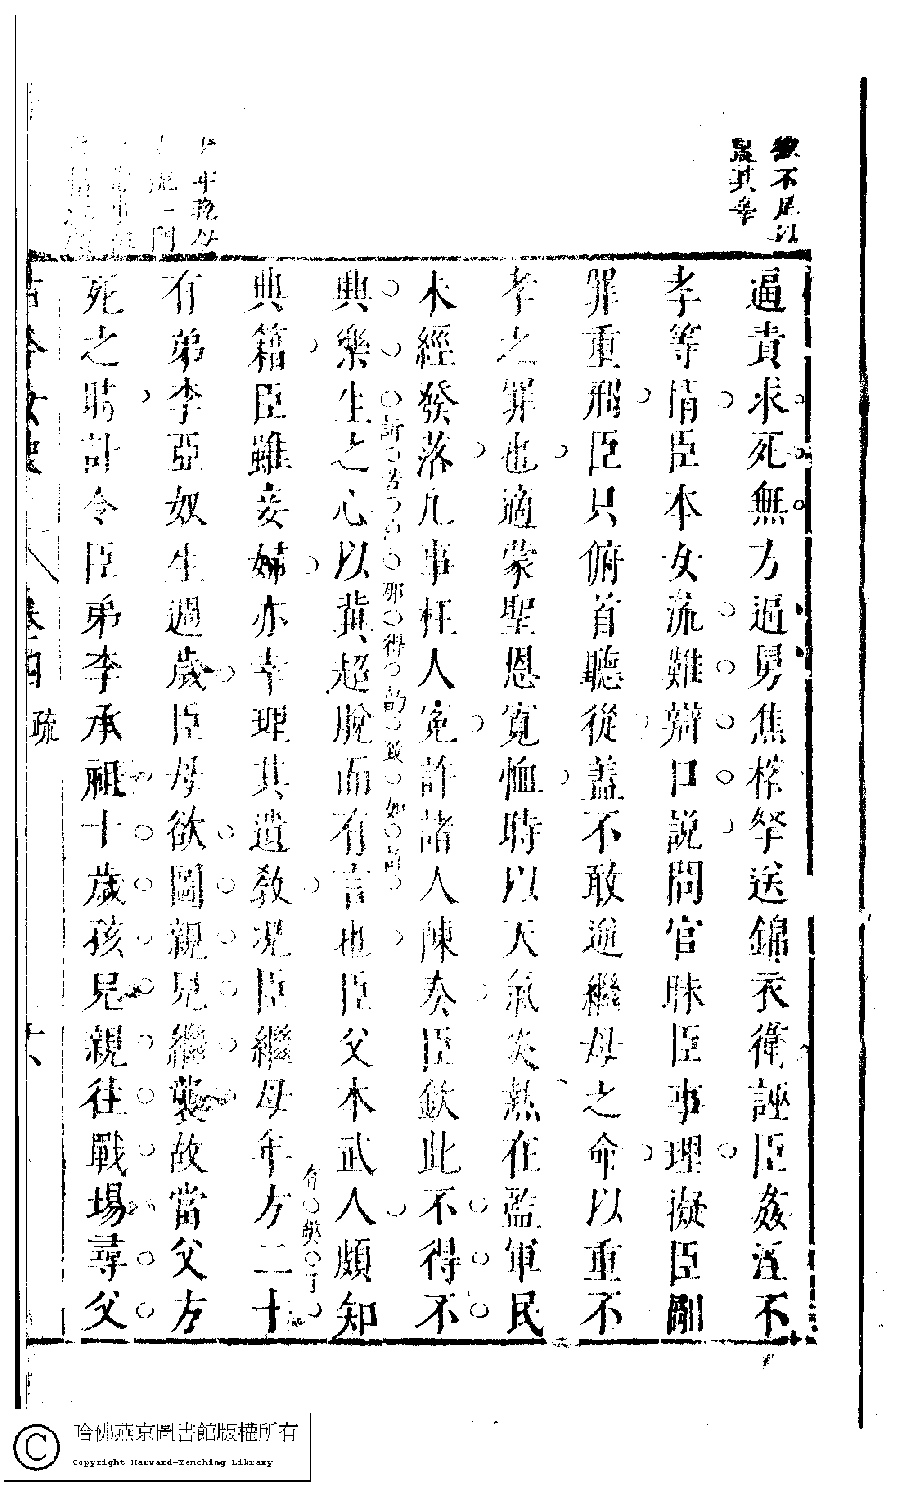 逼責求死無方逼舅焦榕拏送錦衣衛誣臣姦淫不
孝等情臣本女流難辯口說問官昧臣事理擬臣剮
罪重刑臣只俯首聽從蓋不敢逆繼母之命以重不
孝之罪也適蒙聖恩寬恤時以天氣炎熱在監軍民
未經發落凡事枉人冤許諸人陳奏臣欽此不得不
典樂生之心以冀超脫而有言也臣父本武人頗知
典籍臣雖妾婦亦幸理其遺教况臣繼母年方二十
有弟李亞奴生週歲臣母欲圖親兒繼襲故當父方
死之時計令臣弟李承祖十歲孩兒親往戰場尋父
卷四
疏
哈佛燕京圖書館版權所有
Copyright Harvard-Yenching Library